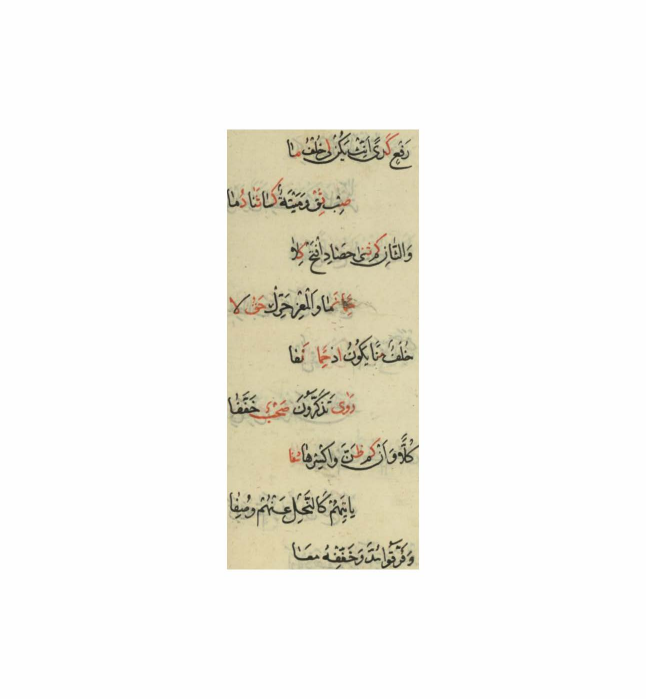 رَفْع كَدَى اَنِّث يَكُنْ لى خُلْفُ مَا
صِبْ ثِقْ وَمَيْتَةٌ كَسَا ثَنَا دُمَا
وَالثَّانِ كَمْ ثَنى حَصَادِ افْتَحْ كِلَا
حِمًا نَمَا وَالْمَعْزِ حَرِّكْ حَقُّ لَا
خُلْفٌ مُنًا يَكُونُ اذ حِمًا نَفَا
رَوى تَذَكَّرُونَ صَحْبٌ خَفَّفَا
كُلًّا وَاَنْ كَمْ ظَنَّ وَاكْسِرْهَا شَفَا
يَاتِيَهُمْ كَالنَّحْلِ عَنْهُمْ وُصِفَا
وَفَرَّقُوا مُدَّ وَخَفِّفْهُ مَعَا